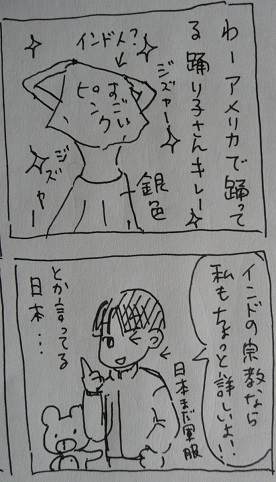 わーアメリカで踊って
る踊り子さんキレー
インド人？
ジズャー
すごい
ピンク
ジズャー
銀色
インドの宗教なら
私もちょっと詳しいよ！
日本まだ軍服
とか言ってる
日本…